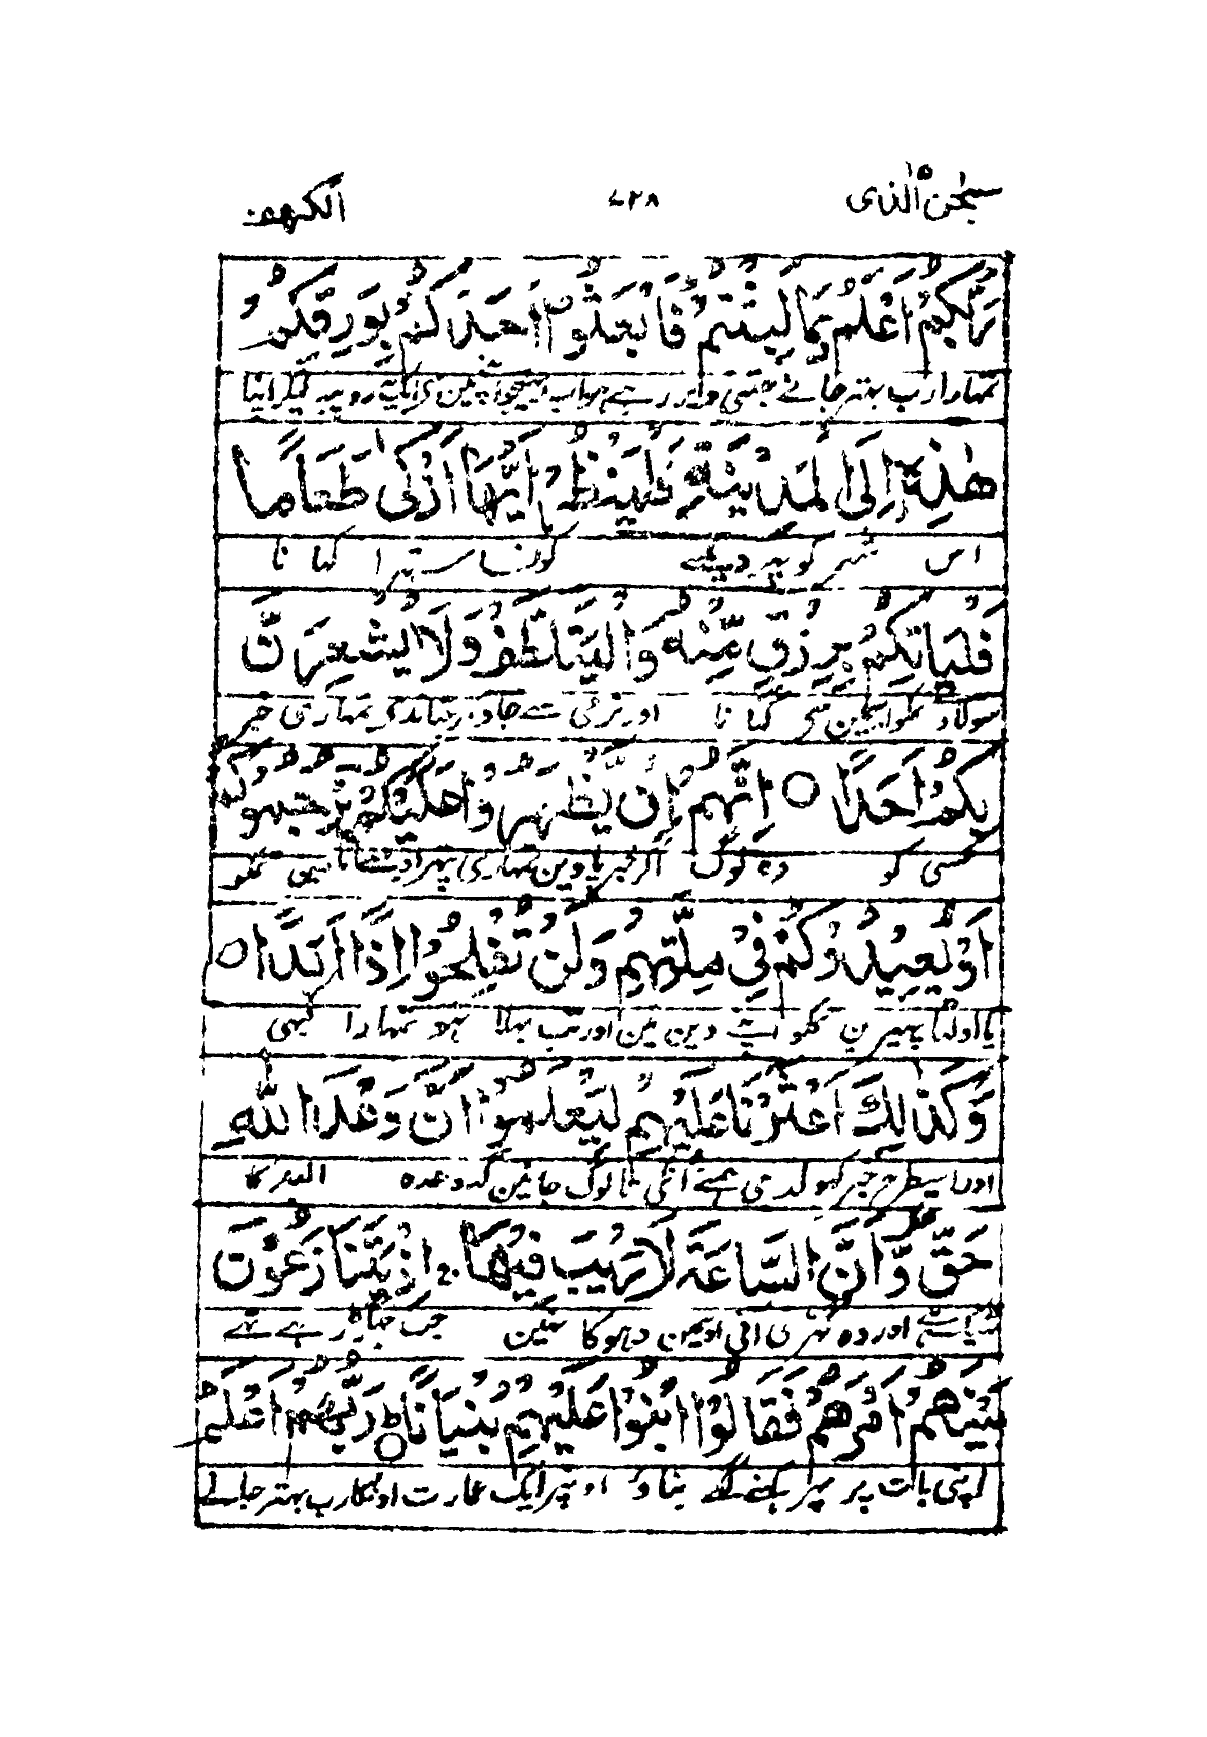 سبحن الذی ۷۲۸ الکهف
رَبُّكُمْ اَعْلَمُ بِمَا لَبِثْتُمْ فَابْعَثُوْۤا اَحَدَكُمْ بِوَرِقِكُمْ
تمہارا رب بہتر جانے جتنی دیر رہے ہو اب بھیجو اپنین سی ایک روپیہ لیکر اپنا
هٰذِهٖۤ اِلَى الْمَدِيْنَةِ فَلْيَنْظُرْ اَيُّهَاۤ اَزْكٰى طَعَامًا
اس شہر کو پہر دیکھے کونسا ستہرا کہانا
فَلْيَاْتِكُمْ بِرِزْقٍ مِّنْهُ وَلْيَتَلَطَّفْ وَلَا يُشْعِرَنَّ
سو لادے تمکو اسمین سے کہانا اور نرمی سے جاوے اور جتا ندے تمہاری خبر
بِكُمْ اَحَدًا ○ اِنَّهُمْ اِنْ يَّظْهَرُوْا عَلَيْكُمْ يَرْجُمُوْكُمْ
کسی کو وہ لوگ اگر خبر پاوین تمہاری پہراو سے مارین تمکو
اَوْ يُعِيْدُوْكُمْ فِيْ مِلَّتِهِمْ وَلَنْ تُفْلِحُوْۤا اِذًا اَبَدًا ○
یا اولٹا پہیرین تمکو اپنے دین مین اور تب بہلا نہو تمہارا کبہی
وَكَذٰلِكَ اَعْثَرْنَا عَلَيْهِمْ لِيَعْلَمُوْۤا اَنَّ وَعْدَ اللّٰهِ
اور اسیطرح خبر کہولدی ہمنے انکی تا لوگ جانین کہ وعدہ اللہ کا
حَقٌّ وَّاَنَّ السَّاعَةَ لَا رَيْبَ فِيْهَا اِذْ يَتَنَازَعُوْنَ
ٹہیک ہے اور وہ گہڑی آنی اوسمین دہوکا نہین جب جہگڑ رہے تہے
بَيْنَهُمْ اَمْرَهُمْ فَقَالُوا ابْنُوْا عَلَيْهِمْ بُنْيَانًا رَبُّهُمْ اَعْلَمُ
اپنی بات پر پہر کہنے لگے بناؤ اونپر ایک عمارت اونکا رب بہتر جانے